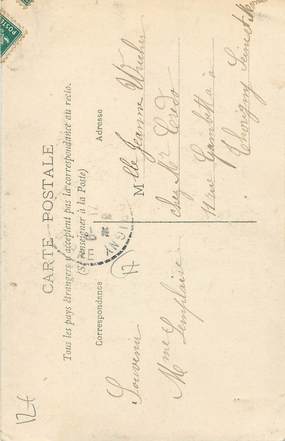 CARTE POSTALE
Tous les pays étrangers n'acceptent pas la correspondance au recto.
(Se renseigner à la Poste)
Correspondance
Adresse
Souvenir
Mme
Mlle Jeanne
chez Mr
11 rue Gambetta à
17
127